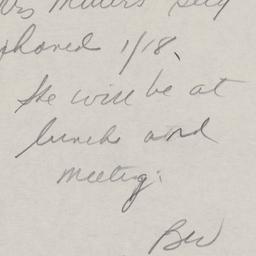 Mrs Millers' Secy
phoned 1/18.
She will be at
lunch and
meeting.
BW